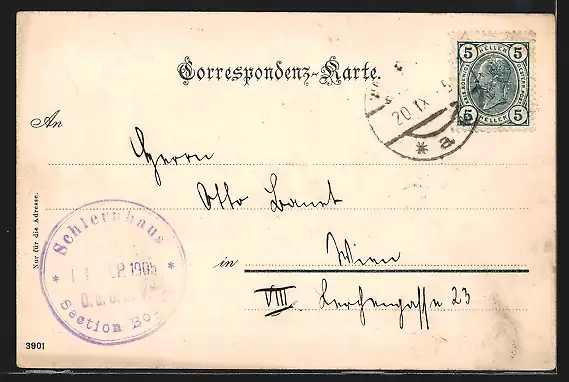 Correspondenz-Karte.
5 HELLER 5
5 HELLER 5
20 IX 5
* a
An
Herrn
Otto Banet
in Wien
VIII Lerchengasse 23
Nur für die Adresse.
* Schlernhaus *
SEP. 1905
D. u. ö.
Section Bo
3901